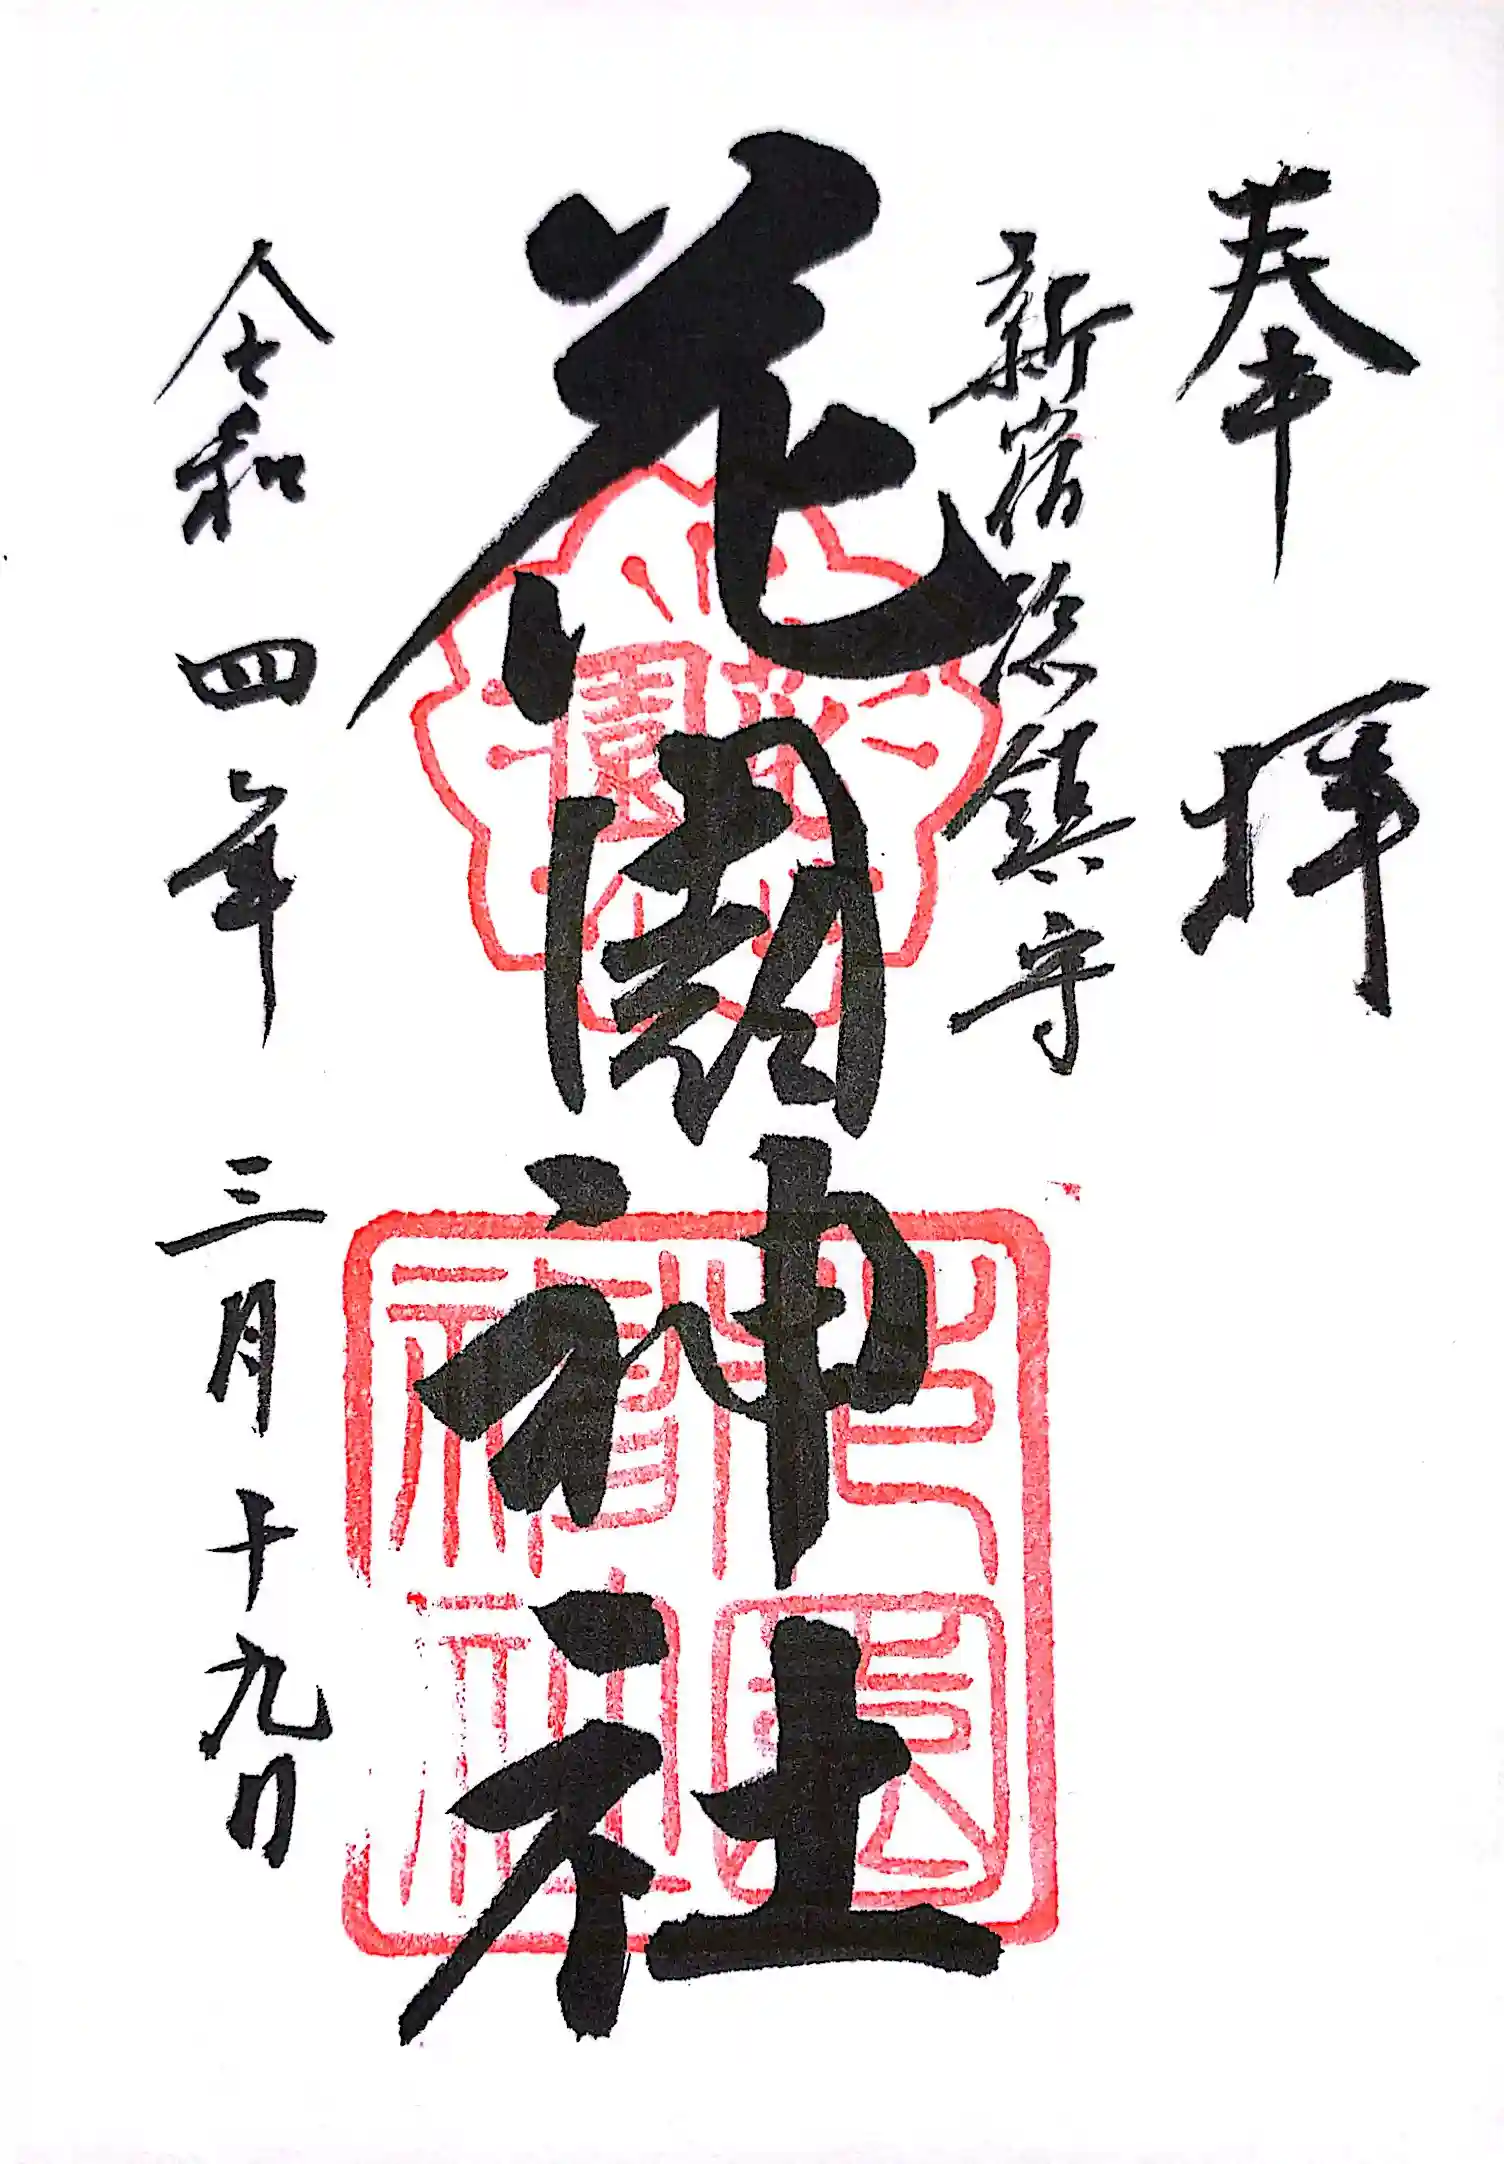 奉拝
新宿総鎮守
花園神社
令和四年三月十九日
花園
花園神社